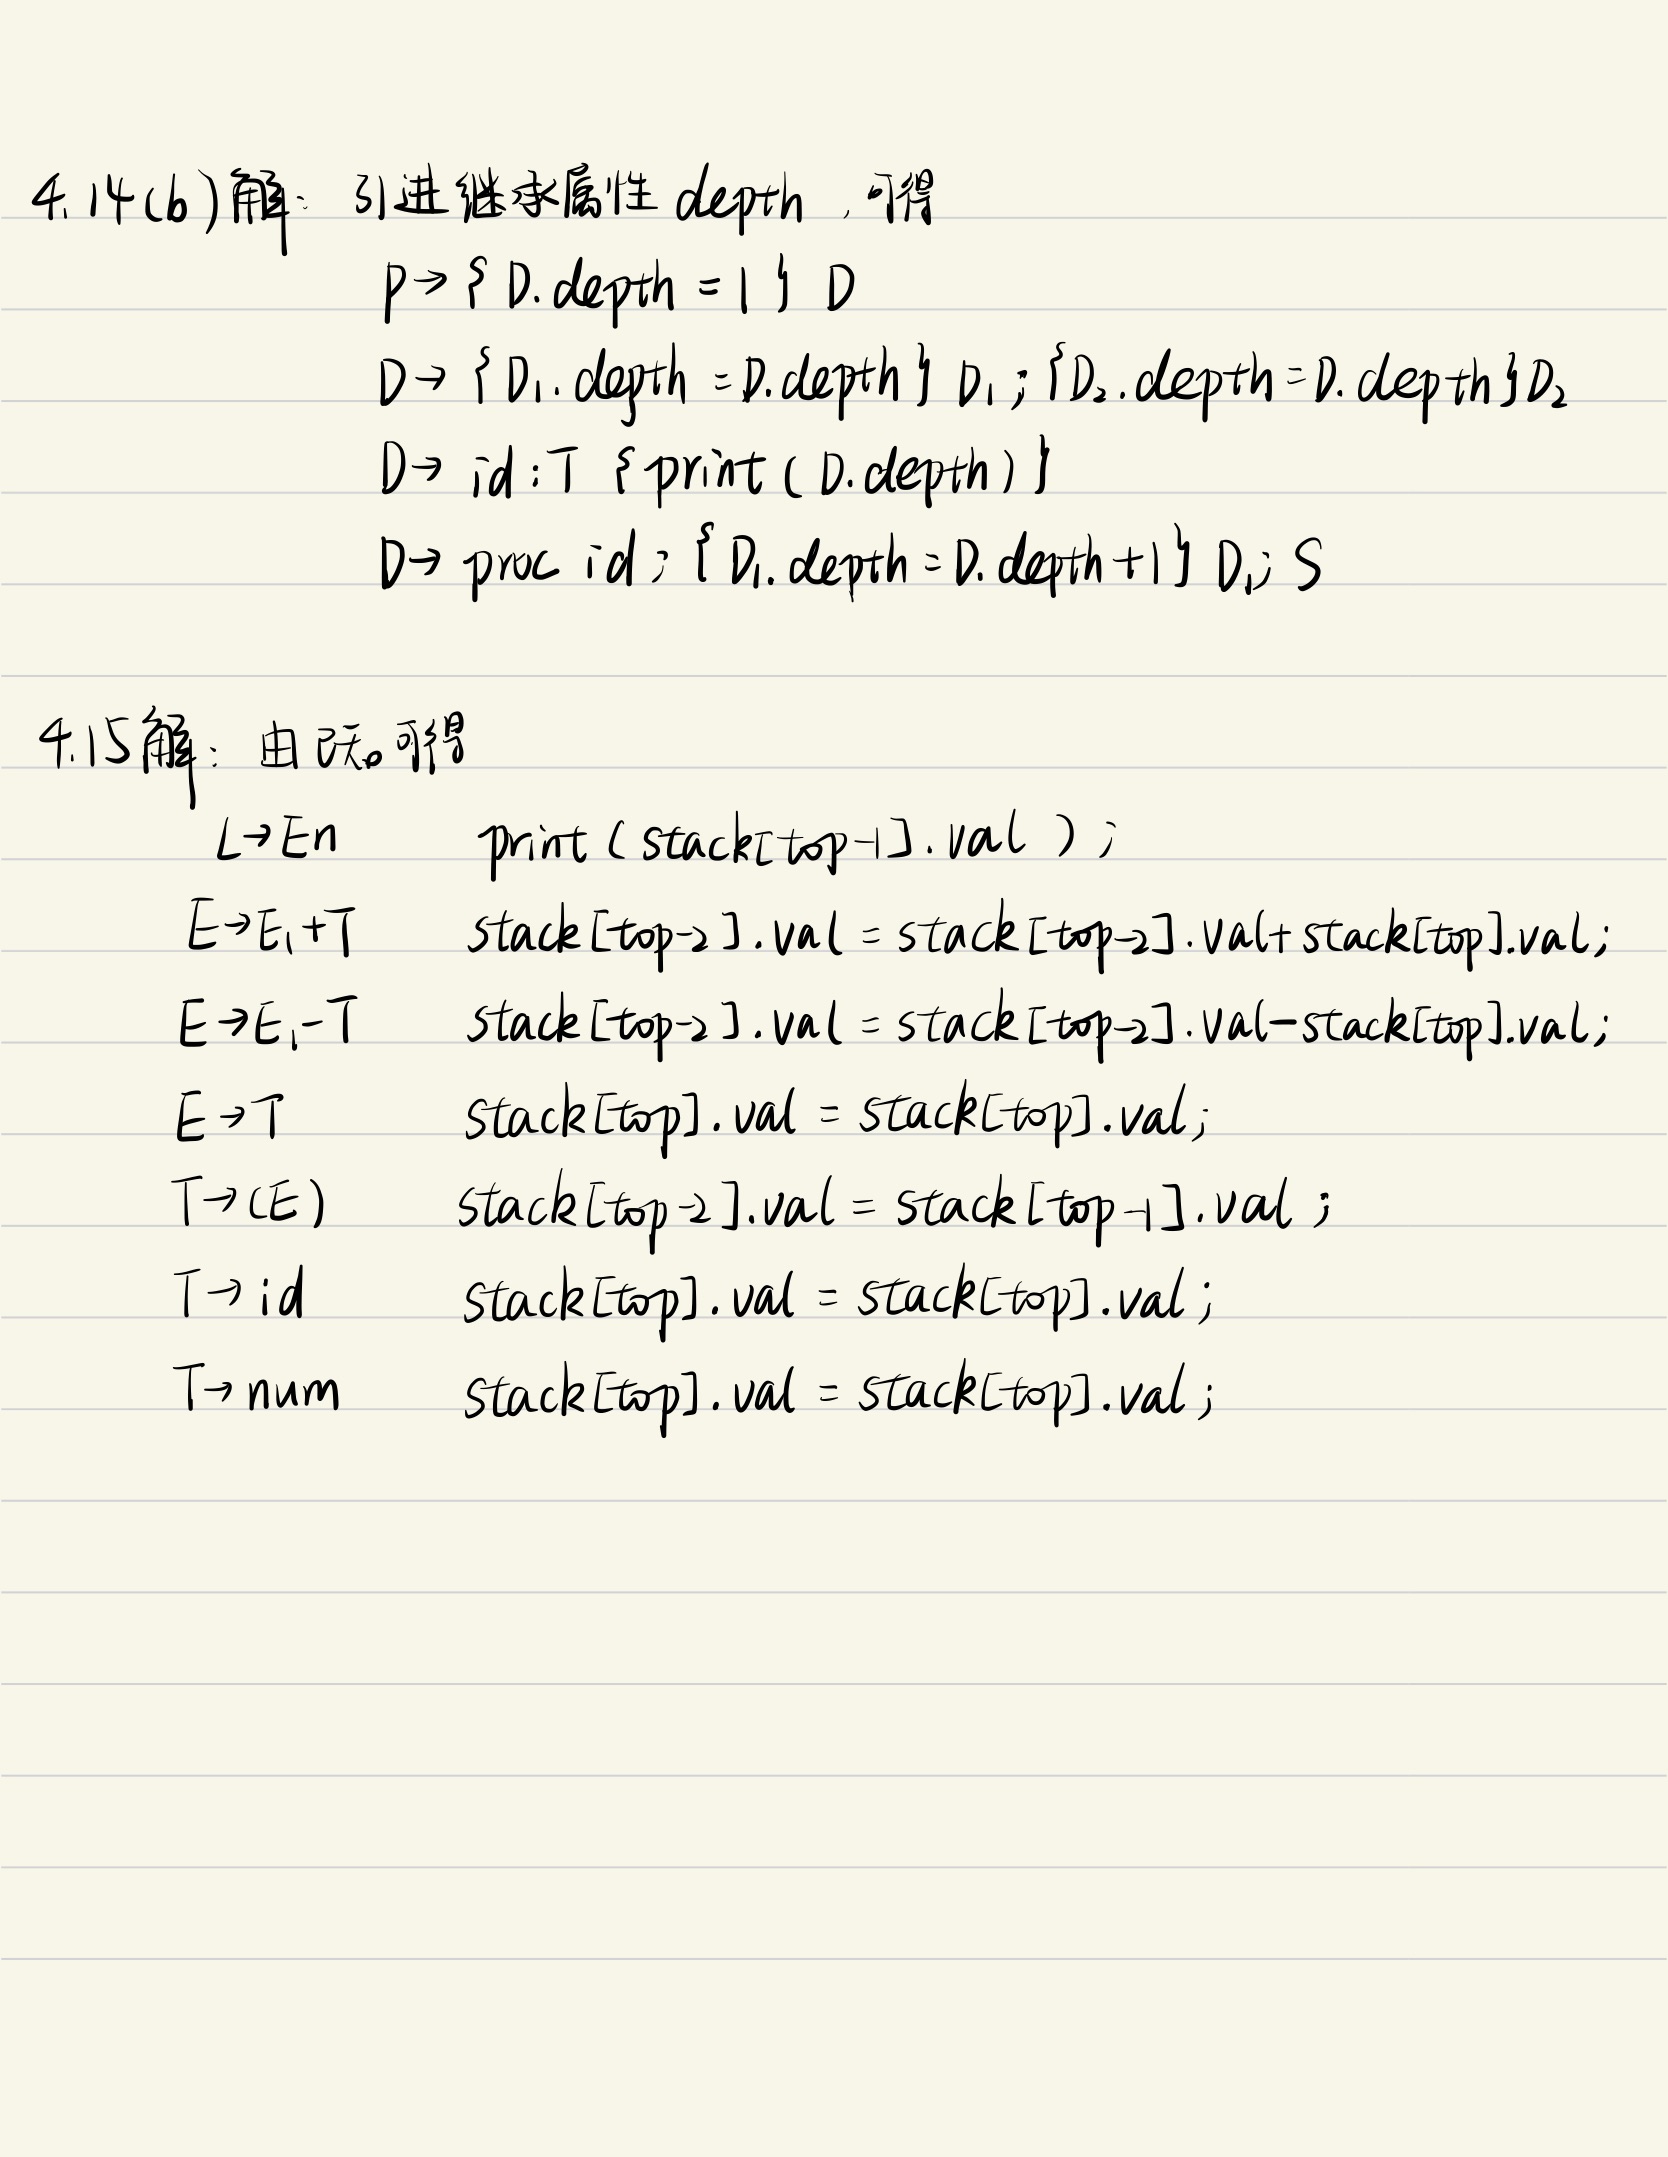 4.14(b)解：引进继承属性 depth，可得
P→{D.depth=1} D
D→{D₁.depth=D.depth} D₁;{D₂.depth=D.depth}D₂
D→id:T {print(D.depth)}
D→proc id;{D₁.depth=D.depth+1} D₁;S
4.15解：由可得
L→En print(stack[top-1].val);
E→E₁+T stack[top-2].val=stack[top-2].val+stack[top].val;
E→E₁-T stack[top-2].val=stack[top-2].val-stack[top].val;
E→T stack[top].val=stack[top].val;
T→(E) stack[top-2].val=stack[top-1].val;
T→id stack[top].val=stack[top].val;
T→num stack[top].val=stack[top].val;